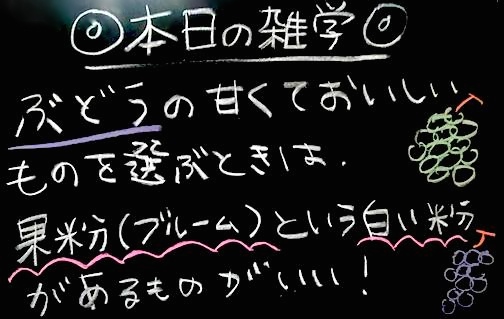 ◎本日の雑学◎
ぶどうの甘くておいしい
ものを選ぶときは、
果粉(ブルーム)という白い粉
があるものがいい!